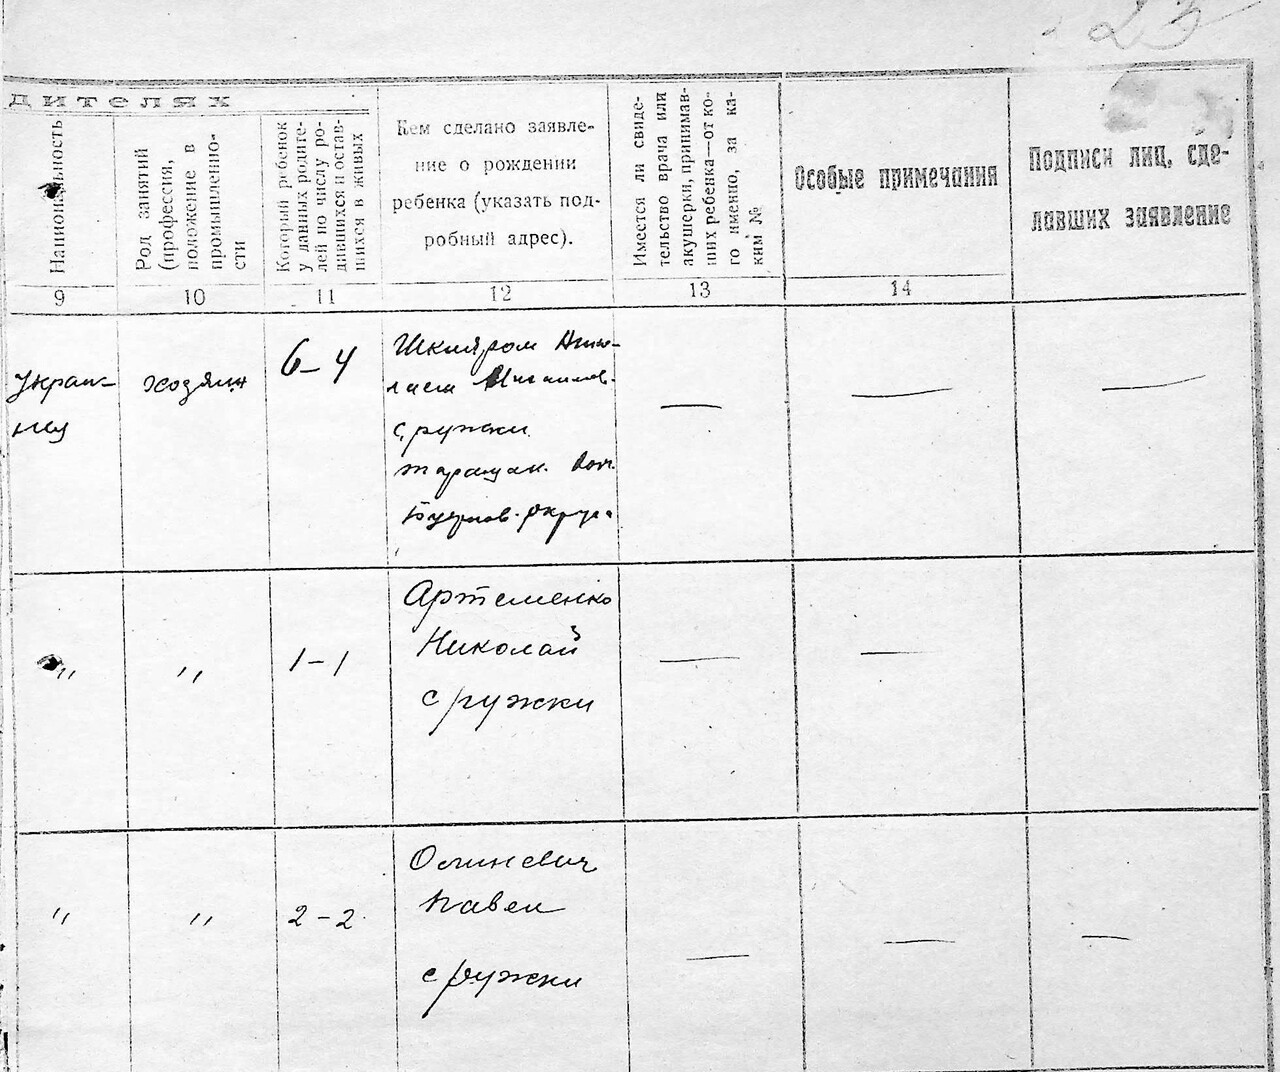 23
дителях
Национальность
Род занятий
(профессия,
положение в
промышленно-
сти
Который ребенок
у данных родите-
лей по числу ро-
дившихся и остав-
шихся в живых
Кем сделано заявле-
ние о рождении
ребенка (указать под-
робный адрес).
Имеется ли свиде-
тельство врача или
акушерки, принимав-
ших ребенка—от ко-
го именно, за ка-
ким №
Особые примечания
Подписи лиц, сде-
лавших заявление
9
10
11
12
13
14
Украи-
нец
6-4
Шкляром
с. ружки
округа
—
—
—
"
"
1-1
Артеменко
Николай
с ружки
—
—
"
"
2-2
Павел
с ружки
—
—
—